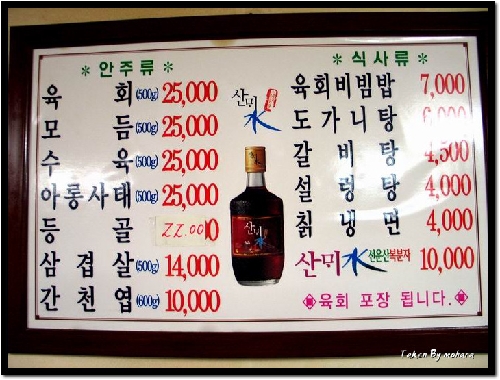 * 안주류 *
육 회 (500g) 25,000
모 듬 (500g) 25,000
수 육 (500g) 25,000
아롱사태 (500g) 25,000
등 골 22.00
삼 겹 살 (500g) 14,000
간 천 엽 (600g) 10,000
산머水
산머水
* 식사류 *
육회비빔밥 7,000
도가니탕 6,000
갈 비 탕 4,500
설 렁 탕 4,000
칡 냉 면 4,000
산머水 선운산복분자 10,000
육회 포장 됩니다.
Taken By mohara